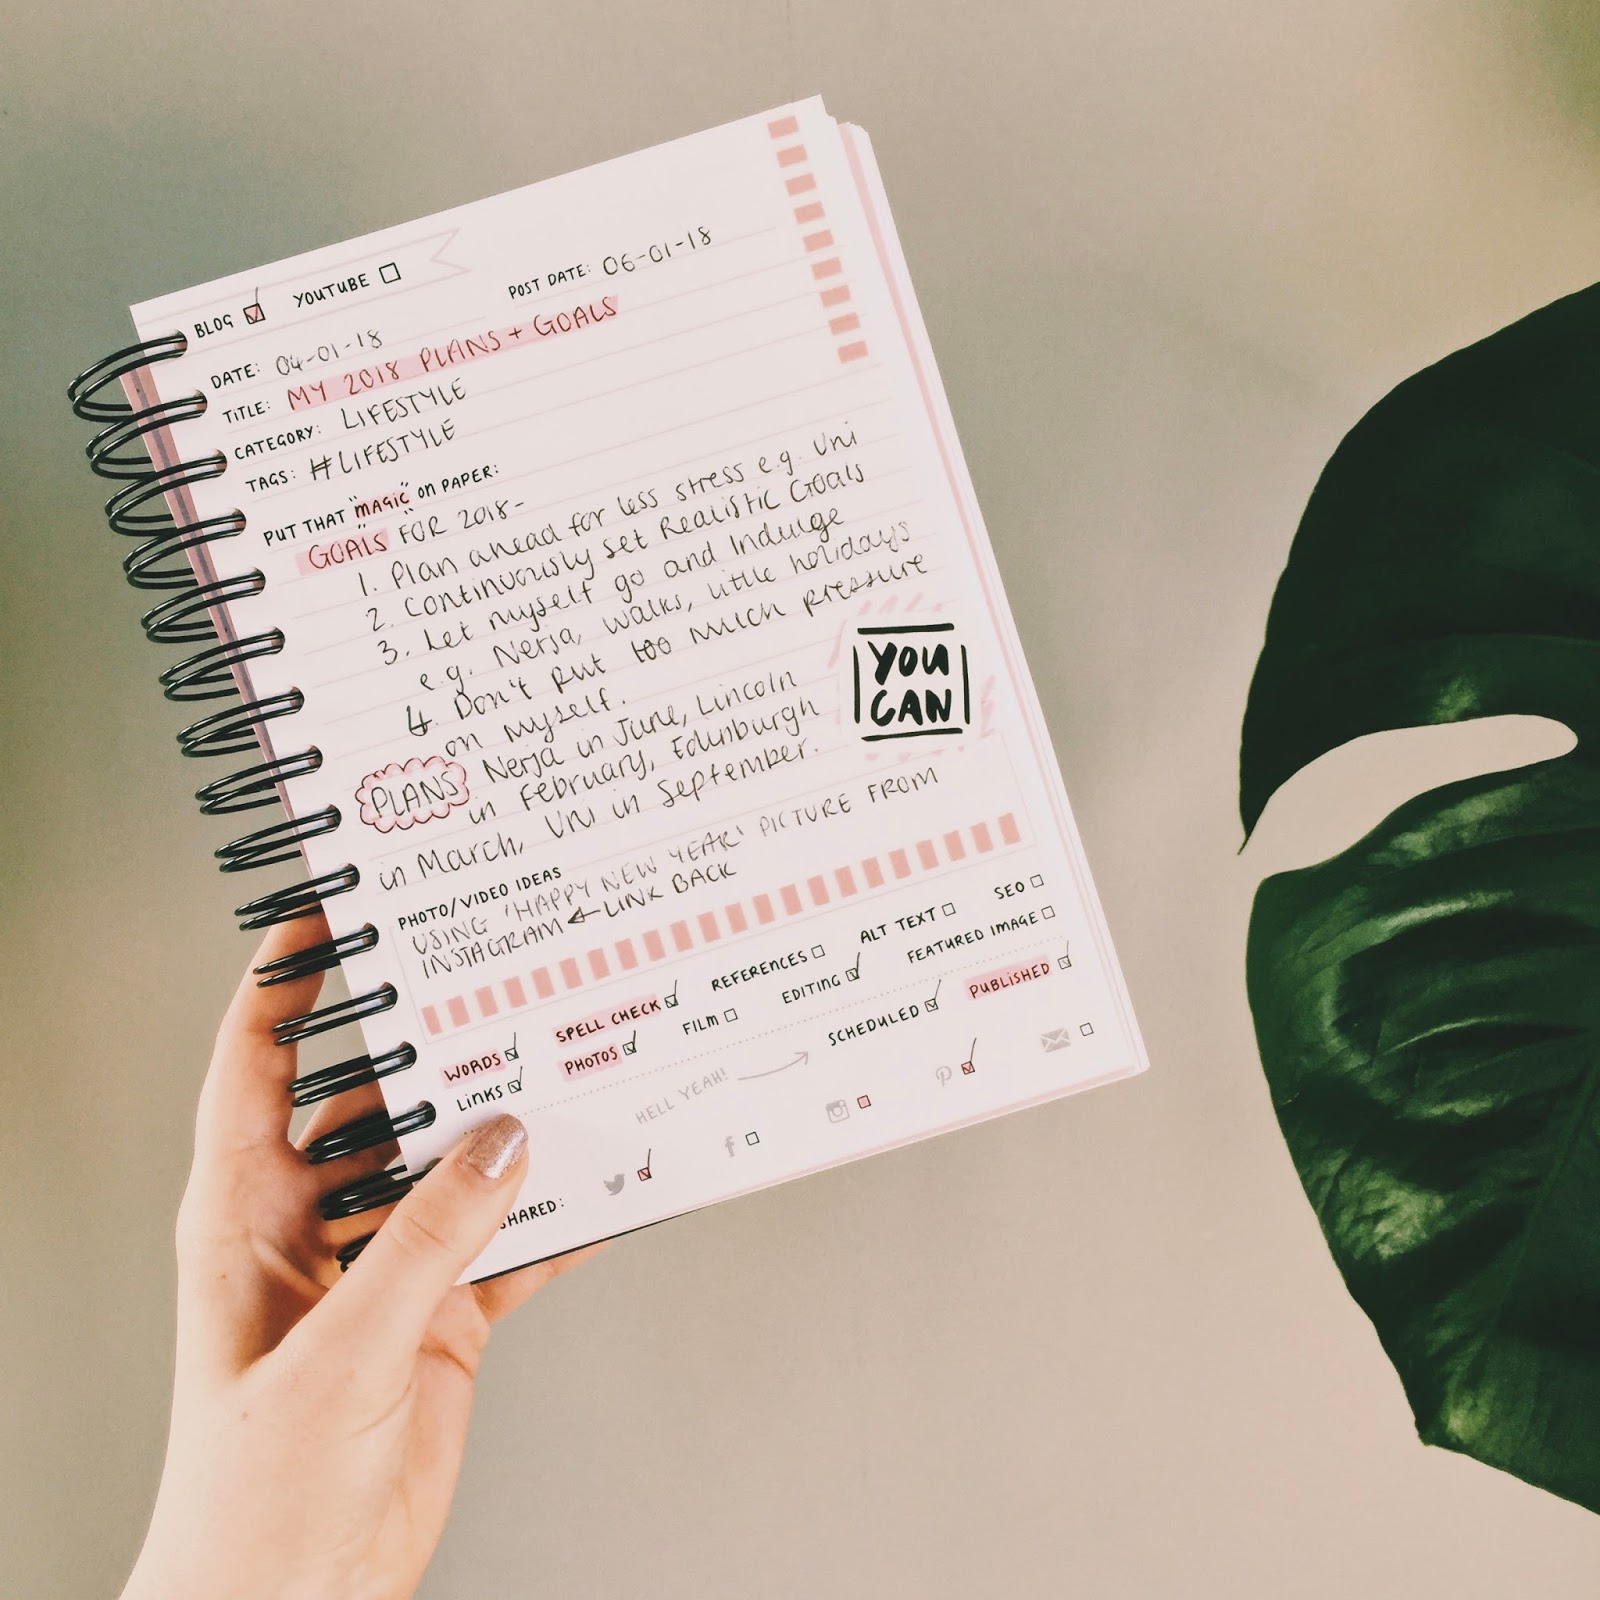 BLOG YOUTUBE
DATE: 04-01-18 POST DATE: 06-01-18
TITLE: MY 2018 PLANS + GOALS
CATEGORY: LIFESTYLE
TAGS: #LIFESTYLE
PUT THAT "MAGIC" ON PAPER:
"GOALS" FOR 2018-
1. Plan ahead for less stress e.g. Uni
2. Continuously set Realistic Goals
3. Let myself go and Indulge
e.g. Nerja, walks, little holidays
4. Don't put too much pressure
on myself.
PLANS Nerja in June, Lincoln
in February, Edinburgh
in March, Uni in September.
YOU
CAN
PHOTO/VIDEO IDEAS
USING 'HAPPY NEW YEAR' PICTURE FROM
INSTAGRAM ← LINK BACK
WORDS SPELL CHECK REFERENCES ALT TEXT SEO
LINKS PHOTOS FILM EDITING FEATURED IMAGE
HELL YEAH! SCHEDULED PUBLISHED
SHARED: